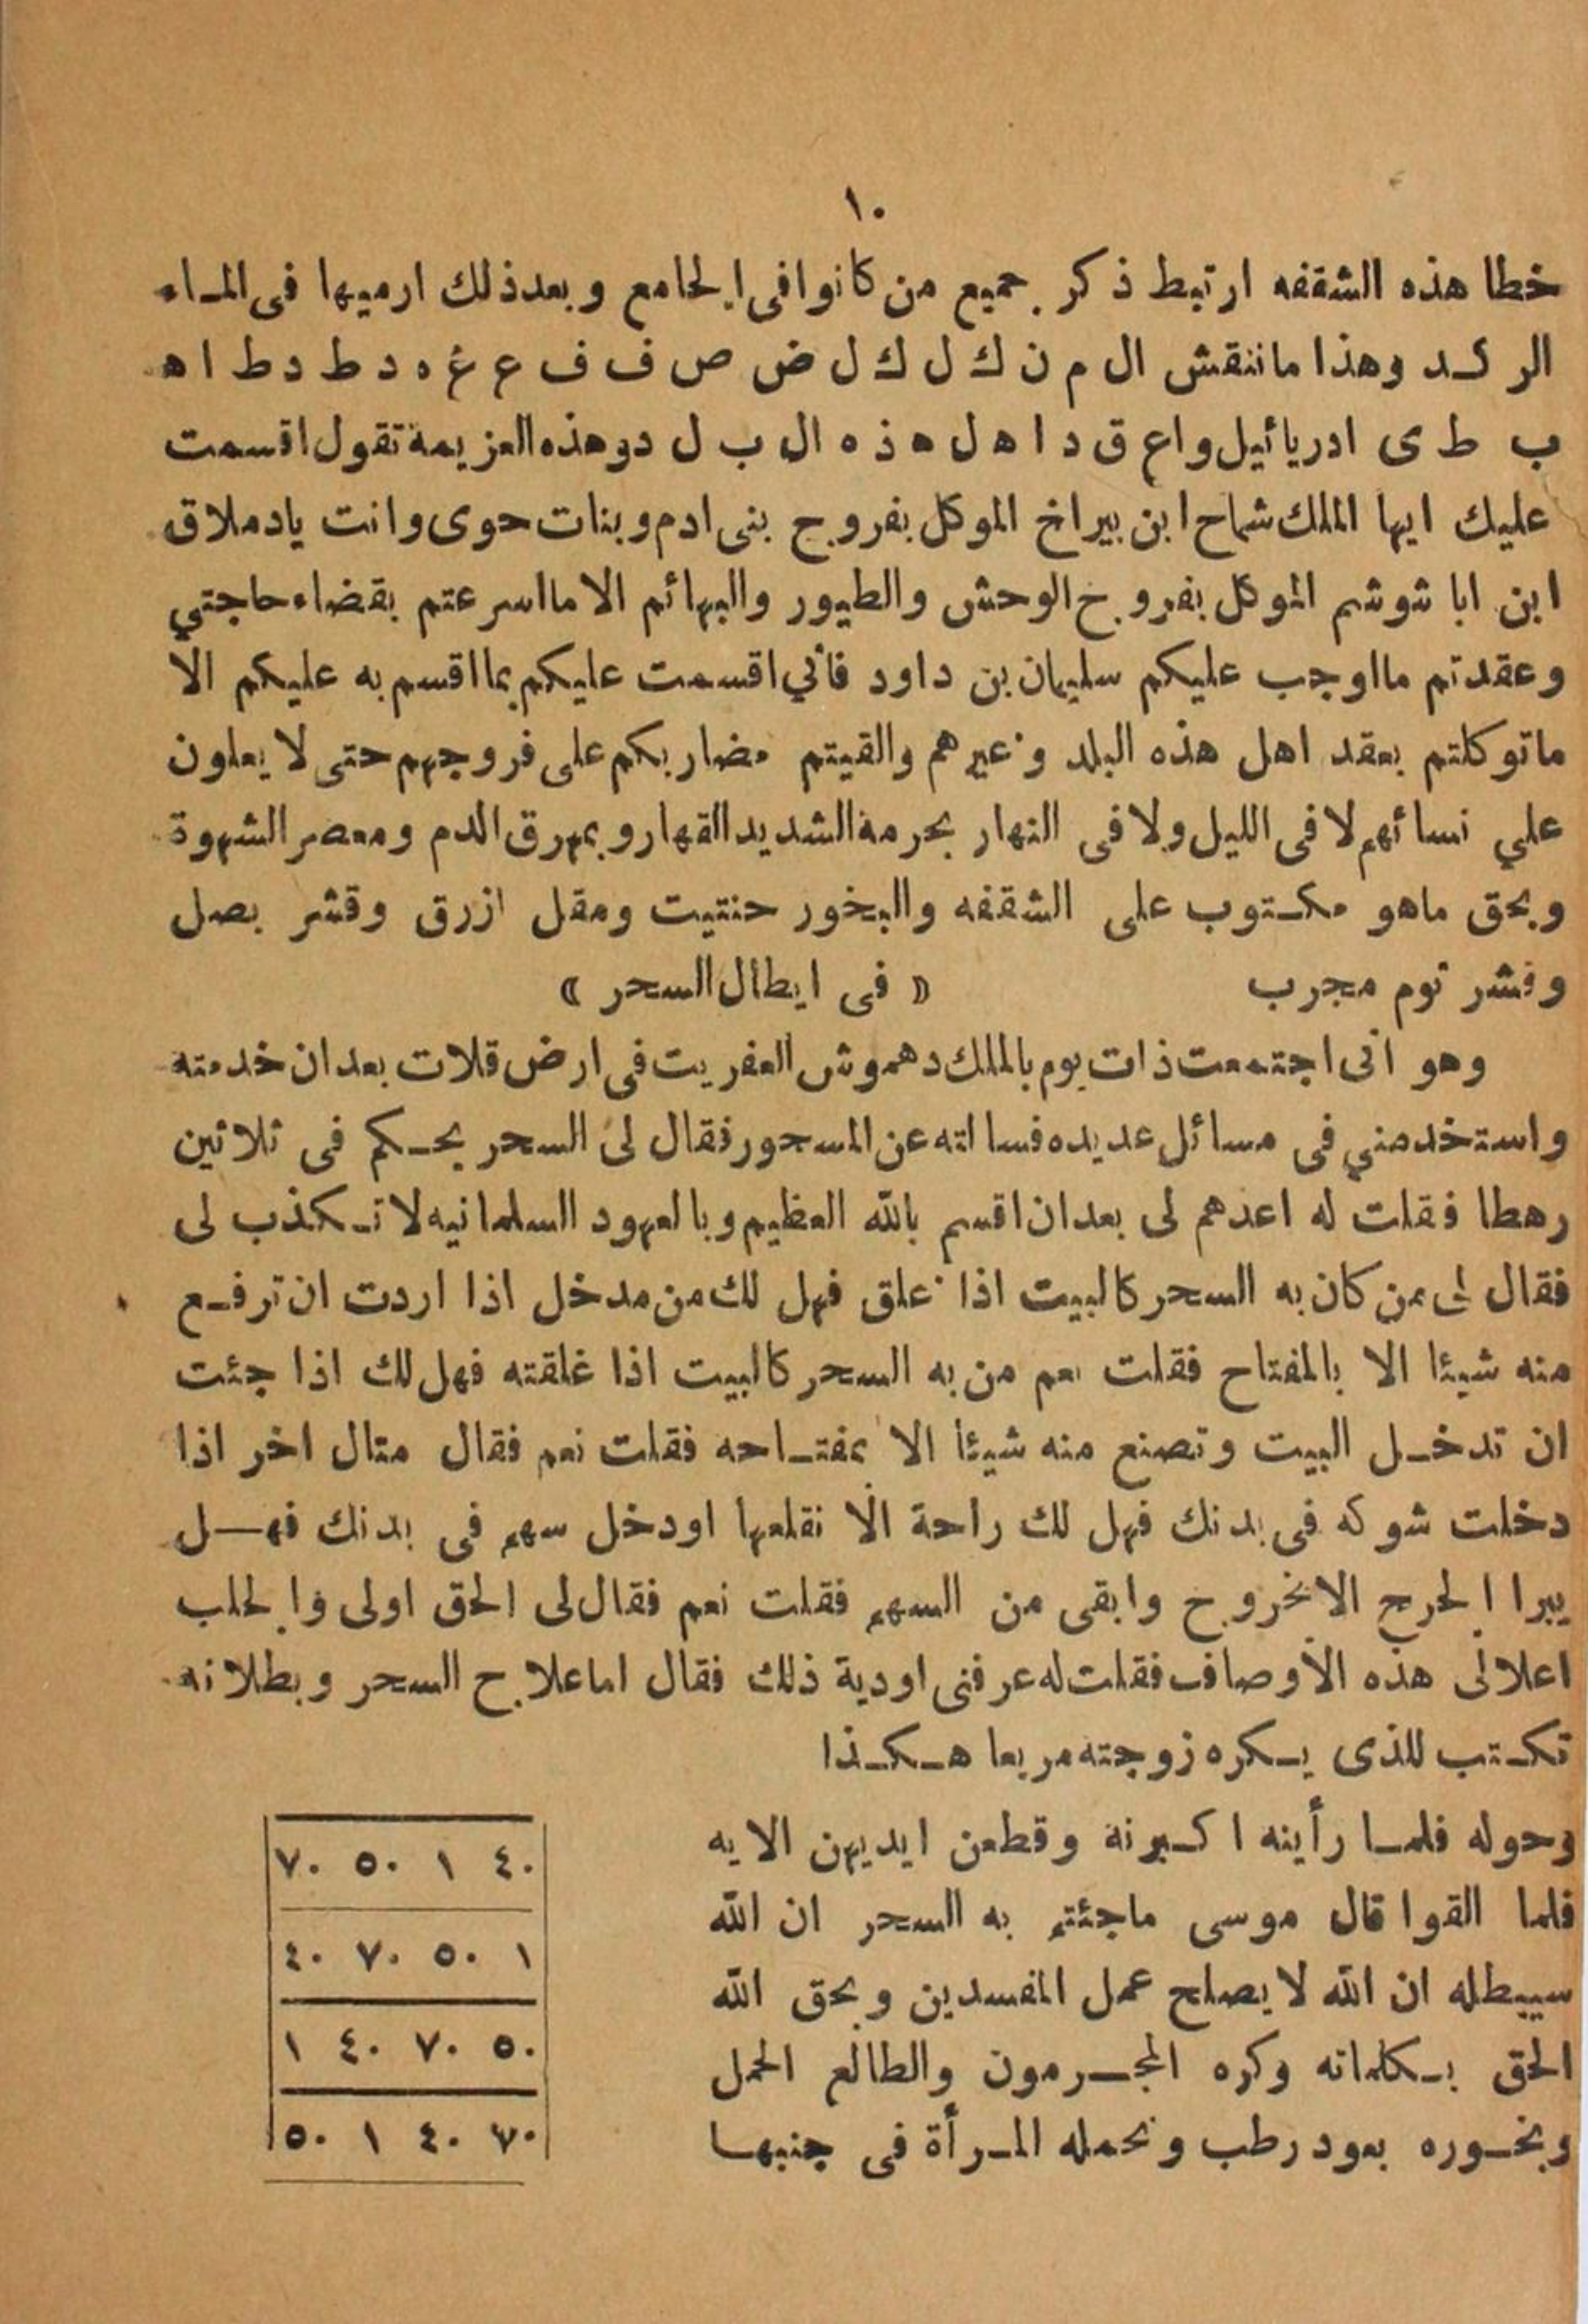 ١٠
خطا هذه الشقفه ارتبط ذكر جميع من كانوا فى الجامع وبعد ذلك ارميها فى المـاء
الركـد وهذا ماننقش ال م ن ك ل ك ل ض ص ف ف ع غ ه د ط د ط ا ه
ب ط ى ادريائيل واع ق د ا ه ل ه ذ ه ال ب ل د وهذه العزيمة تقول اقسمت
عليك ايها الملك شماح ابن بيراخ الموكل بفروج بنى ادم وبنات حوى وانت يادملاق
ابن ابا شوشم الموكل بفروج الوحش والطيور والبهائم الا مااسرعتم بقضاء حاجتي
وعقدتم مااوجب عليكم سليمان بن داود فأني اقسمت عليكم بما اقسم به عليكم الا
ماتوكلتم بعقد اهل هذه البلد وغيرهم والقيتم مضاربكم على فروجهم حتى لا يعلون
علي نسائهم لا فى الليل ولا فى النهار بحرمة الشديد القهار وبمهرق الدم ومعصر الشهوة
وبحق ماهو مكـتوب على الشقفه والبخور حنتيت ومقل ازرق وقشر بصل
وقشر توم مجرب « فى ابطال السحر »
وهو انى اجتمعت ذات يوم بالملك دهموش العفريت فى ارض قلات بعد ان خدمته
واستخدمني فى مسائل عديده فسالته عن المسحور فقال لى السحر يحـكم فى ثلاثين
رهطا فقلت له اعدهم لى بعد ان اقسم بالله العظيم وبالعهود السلمانيه لا تـكذب لى
فقال لى من كان به السحر كالبيت اذا غلق فهل لك من مدخل اذا اردت ان ترفـع
منه شيئا الا بالمفتاح فقلت نعم من به السحر كالبيت اذا غلقته فهل لك اذا جئت
ان تدخـل البيت وتصنع منه شيئا الا بمفتـاحه فقلت نعم فقال متال اخر اذا
دخلت شوكه فى بدنك فهل لك راحة الا نقلعها اودخل سهم فى بدنك فهـل
يبرا الجرح الابخروج وابقى من السهم فقلت نعم فقال لى الحق اولى والحلب
اعلا لى هذه الاوصاف فقلت له عرفنى اودية ذلك فقال اما علاج السحر وبطلانه
تكـتب للذى يـكره زوجته مربعا هـكـذا
وحوله فلمـا رأينه اكـبرنه وقطعن ايديهن الايه
فلما القوا قال موسى ماجئتم به السحر ان الله
سيبطله ان الله لا يصلح عمل المفسدين وبحق الله
الحق بـكلماته وكره المجـرمون والطالع الحمل
وبخـوره بعود رطب وتحمله المـرأة فى جنبهـا
٤٠ ١ ٥٠ ٧٠
١ ٥٠ ٧٠ ٤٠
٥٠ ٧٠ ٤٠ ١
٧٠ ٤٠ ١ ٥٠